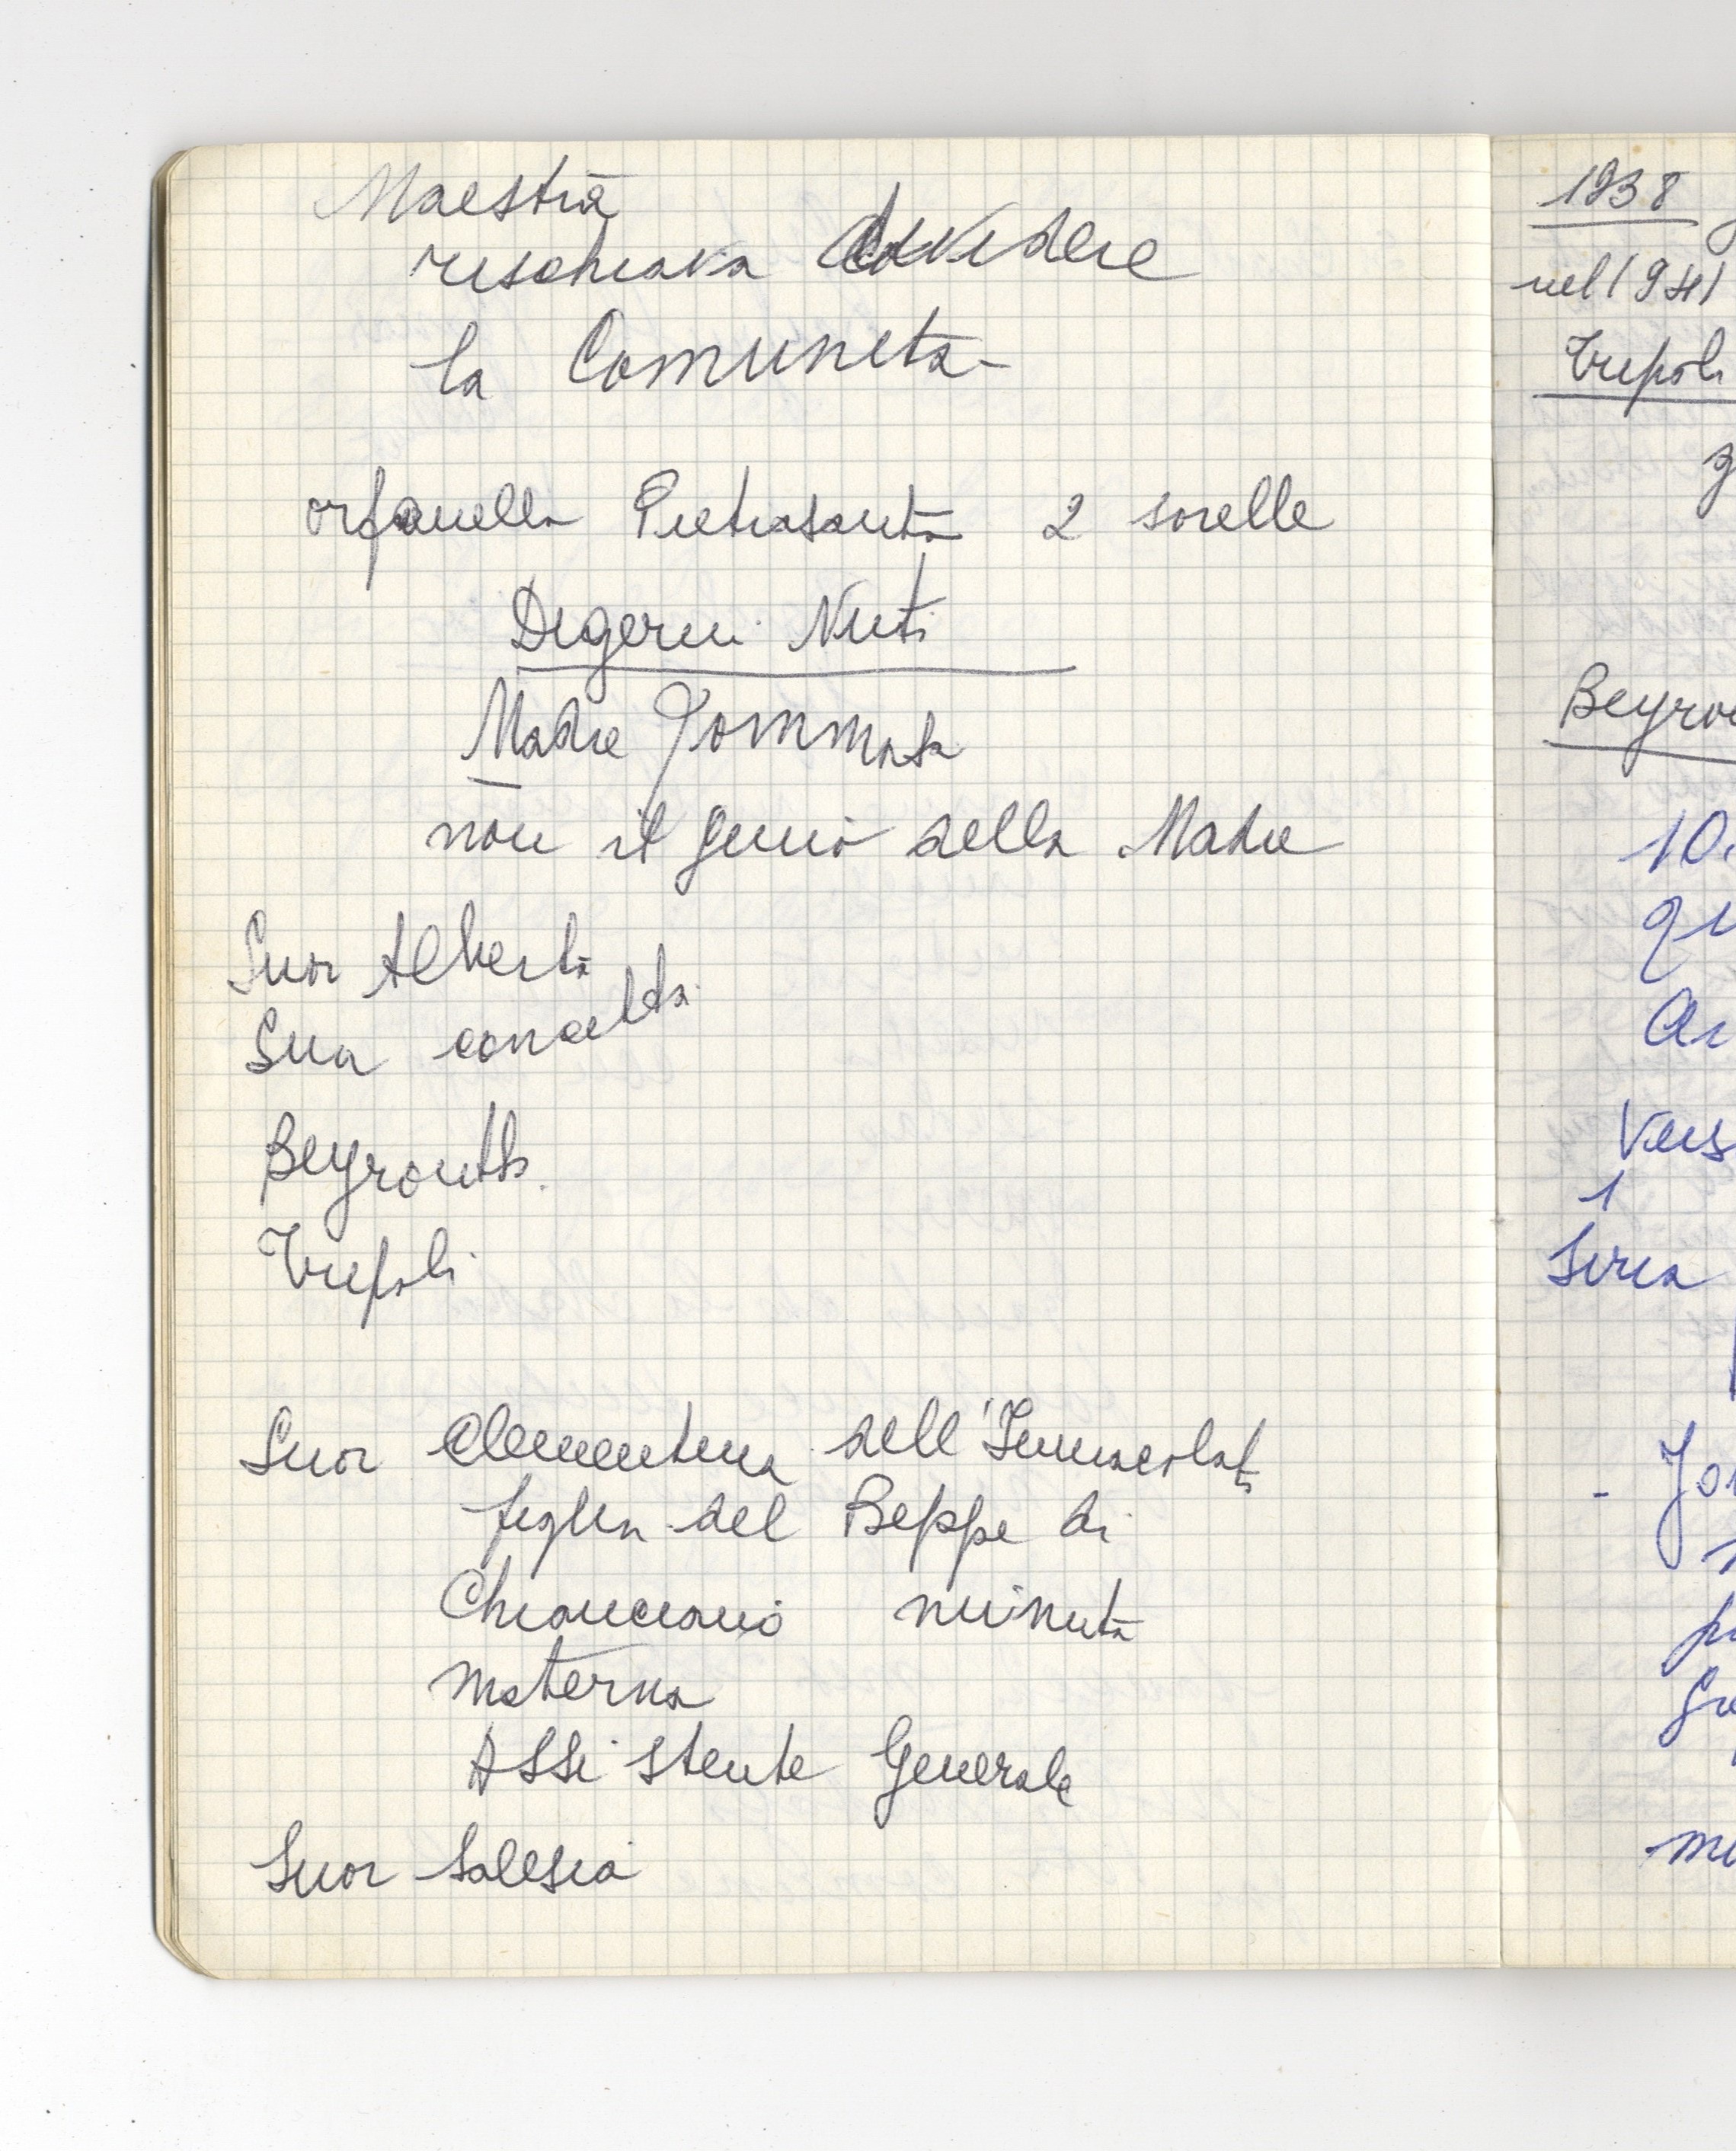 Maestra
rischiava dividere
la Comunità
orfanella Pietrasanta 2 sorelle
Digerini Nuti
Madre Tommasa
non il genio della Madre
Suor Alberta
Suor concetta
Beyrouth.
Tripoli
Suor Clementina dell'Immacolata
figlia del Beppe di
Chianciano minuta
materna
Assistente Generale
Suor Salesia
1938
nel 1941
Tripoli
Beyrou
10.
qu
Vers
1
Siria